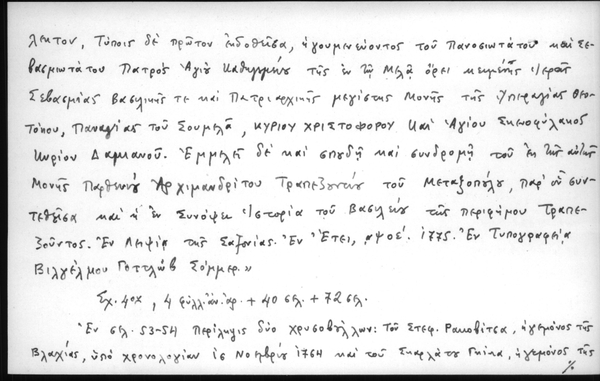 λεκτον, Τύποις δὲ πρῶτον ἐκδοθεῖσα, ἡγουμενεύοντος τοῦ Πανοσιωτάτου καὶ Σε-
βασμιωτάτου Πατρὸς Ἁγίου Καθηγουμένου τῆς ἐν τῷ Μελᾷ ὄρει κειμένης Ἱερᾶς
Σεβασμίας Βασιλικῆς τε καὶ Πατριαρχικῆς μεγίστης Μονῆς τῆς Ὑπεραγίας Θεο-
τόκου, Παναγίας τοῦ Σουμελᾶ, ΚΥΡΙΟΥ ΧΡΙΣΤΟΦΟΡΟΥ καὶ Ἁγίου Σκευοφύλακος
Κυρίου Δαμιανοῦ. Ἐμμελεῖ δὲ καὶ σπουδῇ καὶ συνδρομῇ τοῦ ἐκ τῆς αὐτῆς
Μονῆς Παρθενίου Ἀρχιμανδρίτου Τραπεζουντίου τοῦ Μεταξοπούλου, παρ' οὗ συν-
τεθεῖσα καὶ ἡ ἐν Συνόψει Ἱστορία τοῦ Βασιλείου τῆς περιφήμου Τραπε-
ζοῦντος. Ἐν Λειψίᾳ τῆς Σαξονίας. Ἐν Ἔτει, αψοέ. 1775. Ἐν Τυπογραφείᾳ
Βιλγέλμου Γοττλὼβ Σόμμερ.»
Σχ. 4ον, 4 φύλλ. ἀν. ἀρ. + 40 σελ. + 72 σελ.
Ἐν σελ. 53-54 περίληψις δύο χρυσοβούλλων: Τοῦ Στεφ. Ρακοβίτσα, ἡγεμόνος τῆς
Βλαχίας, ὑπὸ χρονολογίαν 15 Νοεμβρίου 1764 καὶ τοῦ Σκαρλάτου Γκίκα, ἡγεμόνος τῆς